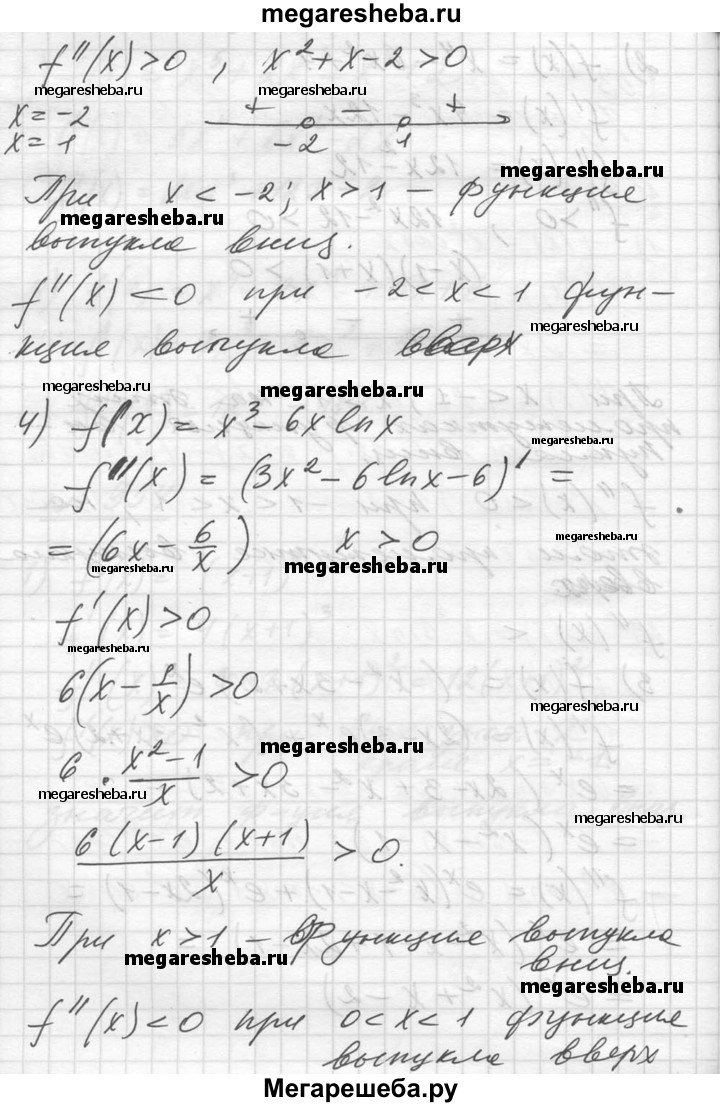 megaresheba.ru
f''(x)>0 , x²+x-2>0
megaresheba.ru megaresheba.ru
x=-2 + - +
x=1 -2 1
megaresheba.ru
При x<-2; x>1 - функция
megaresheba.ru
выпукла вниз.
f''(x)<0 при -2<x<1 фун-
megaresheba.ru
кция выпукла вверх
megaresheba.ru
megaresheba.ru
megaresheba.ru
4) f(x)=x³-6x ln x
megaresheba.ru
f''(x)=(3x²-6ln x-6)'=
=(6x-6/x) x>0
megaresheba.ru
megaresheba.ru megaresheba.ru
f'(x)>0
megaresheba.ru
6(x-1/x)>0
megaresheba.ru
megaresheba.ru
6·(x²-1)/x>0
megaresheba.ru
megaresheba.ru
6(x-1)(x+1)/x>0.
При x>1 - функция выпукла
megaresheba.ru
вниз.
megaresheba.ru
f''(x)<0 при 0<x<1 функция
выпукла вверх
Мегарешеба.ру